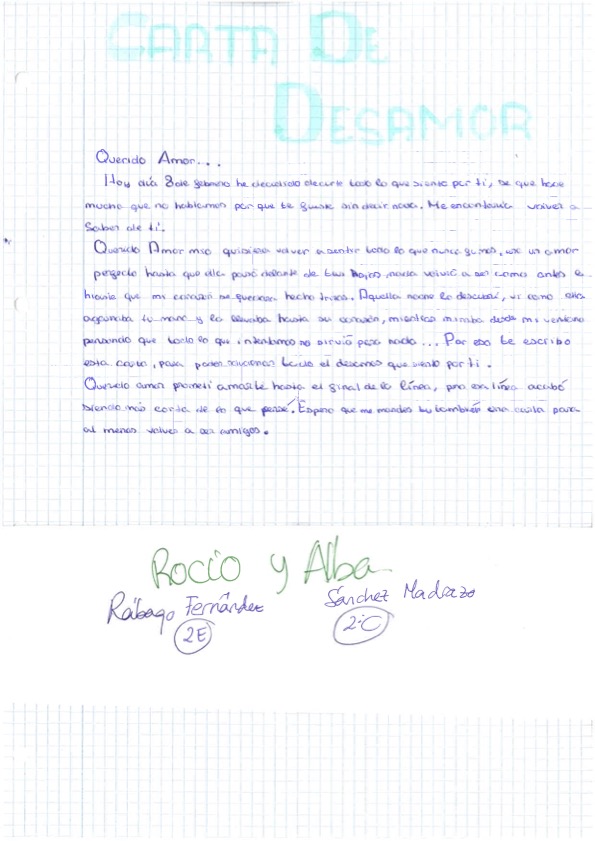 CARTA DE
DESAMOR
Querido Amor...
Hoy día 8 de febrero he decidido decirte todo lo que siento por ti, se que hace
mucho que no hablamos por que te fuiste sin decir nada. Me encantaría volver a
Saber de ti.
Querido Amor mio quisiera volver a sentir todo lo que nunca fuimos, un amor
perfecto hasta que ella pasó delante de tus hojos, nada volvió a ser como antes
hicavía que mi corazón se quedara hecho trizas. Aquella noche lo descubrí, vi como ella
agarraba tu mano y la llevaba hasta su corazón, mientras miraba desde mi ventana
pensando que todo lo que intentamos no sirvió para nada... Por eso te escribo
esta carta, para poder solucionar todo el desamor que siento por ti.
Querido amor prometí amarte hasta el final de la línea, pero esa línea acabó
siendo más corta de lo que pensé. Espero que me mandes tu también una carta para
al menos volver a ser amigos.
Rocío y Alba
Rábago Fernández Sánchez Madrazo
2E 2ºC